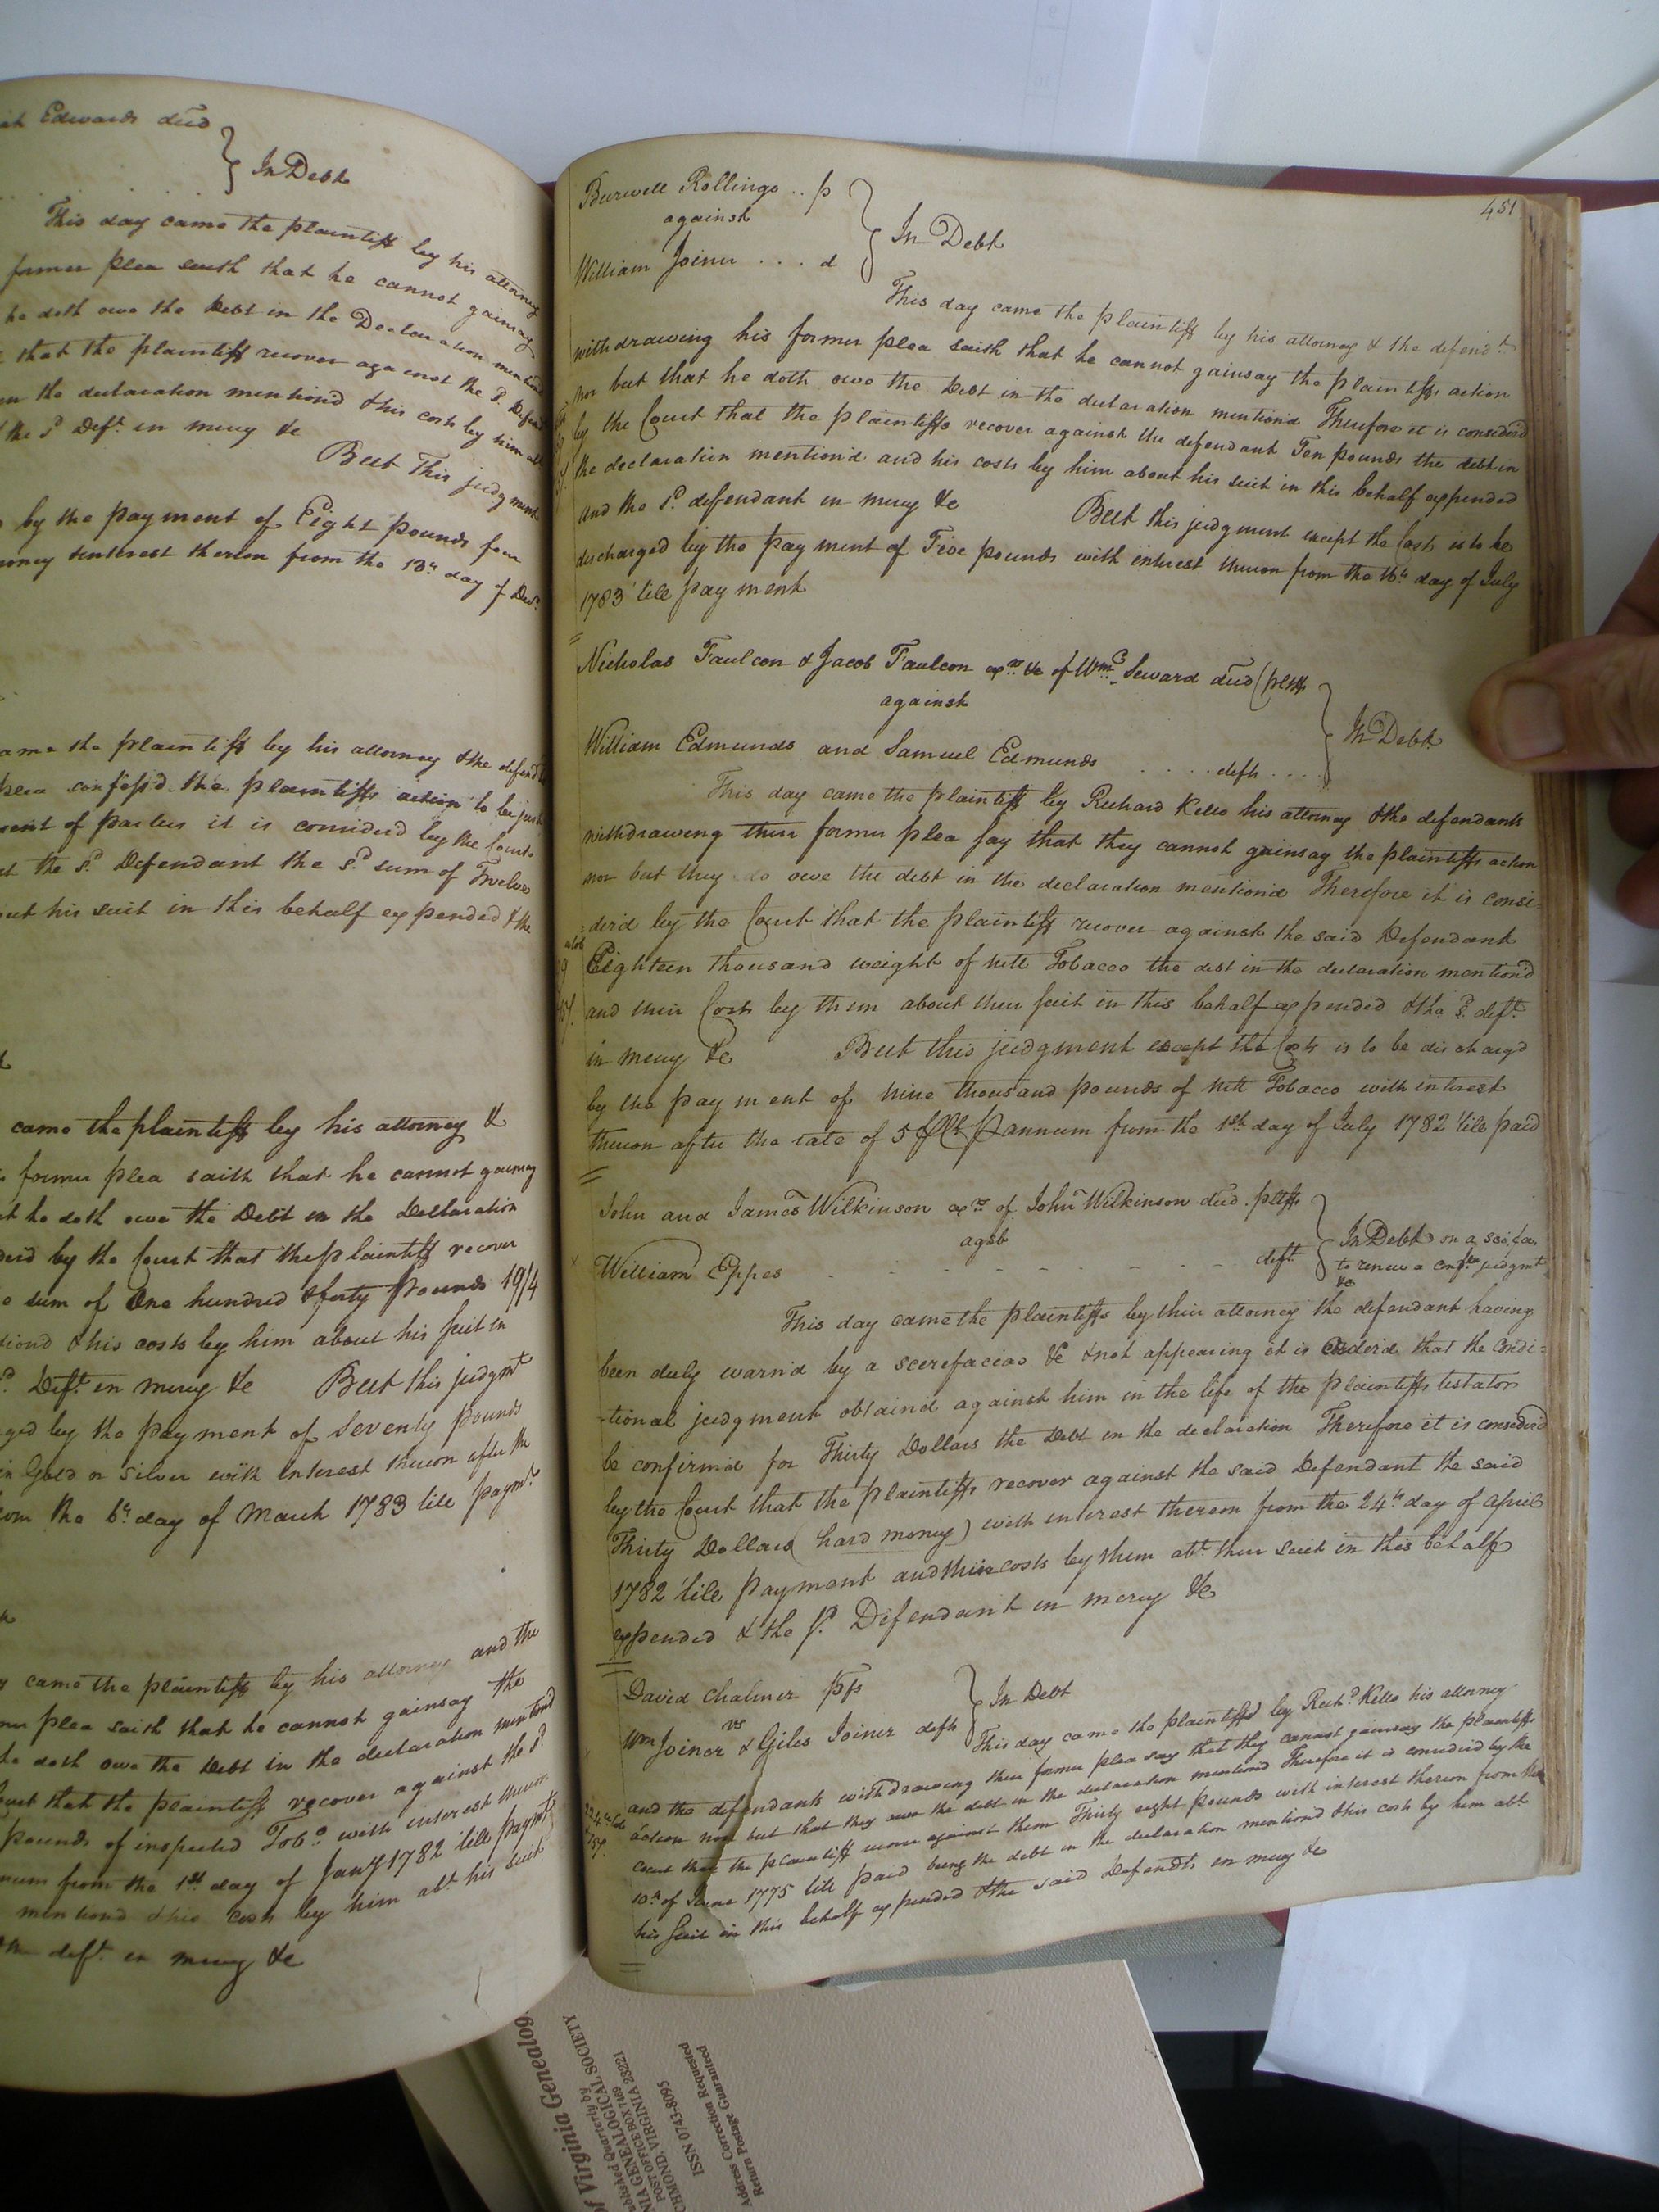 Edwards decd
In Debt
This day came the plaintiff by his attorney
former plea saith that he cannot gainsay
he doth owe the Debt in the Declaration mention'd
that the plaintiff recover against the sd. Defend
the declaration mention'd & his costs by him
the sd Deft. in mercy &c
But This judgment
by the payment of Eight pounds four
money & interest thereon from the 13th. day of Decr.
came the plaintiff by his attorney & the defend
plea confess'd the plaintiffs action to be just
of parties it is considerd by the Court
the sd. Defendant the sd. sum of Twelve
his suit in this behalf expended & the
came the plaintiff by his attorney &
former plea saith that he cannot gainsay
he doth owe the Debt in the Declaration
by the Court that the plaintiff recover
sum of One hundred & forty Pounds 19/4
& his costs by him about his suit in
Deft. in mercy &c But this judgmt
by the payment of Seventy pounds
in Gold or Silver with interest thereon after the
the 6th. day of March 1783 till paymt.
came the plaintiff by his attorney and the
plea saith that he cannot gainsay the
he doth owe the Debt in the declaration mentiond
that the plaintiff recover against the sd.
pounds of inspected Tobo. with interest thereon
from the 1st. day of Jany 1782 'till paymt
mentiond & his costs by him abt. his suit
the deft. in mercy &c
451
Burwell Rollings .. p
against
William Joiner .... d
In Debt
This day came the plaintiff by his attorney & the defendt.
withdrawing his former plea saith that he cannot gainsay the plaintiffs action
nor but that he doth owe the Debt in the declaration mention'd Therefore it is considerd
by the Court that the plaintiffs recover against the defendant Ten pounds the debt in
the declaration mention'd and his costs by him about his suit in this behalf expended
and the sd. defendant in mercy &c But this judgment except the Costs is to be
discharged by the payment of Five pounds with interest thereon from the 16th. day of July
1783 'till payment
Nicholas Faulcon & Jacob Faulcon exrs. &c of Wm. Seward decd (pltffs
against
William Edmunds and Samuel Edmunds .... defts ...
In Debt
This day came the plaintiff by Richard Kello his attorney & the defendants
withdrawing their former plea say that they cannot gainsay the plaintiffs action
nor but they do owe the debt in the declaration mention'd Therefore it is consi=
=der'd by the Court that the plaintiff recover against the said Defendant
Eighteen thousand weight of nett Tobacco the debt in the declaration mention'd
and their Costs by them about their suit in this behalf expended & the sd. deft.
in mercy &c But this judgment except the Costs is to be discharg'd
by the payment of nine thousand pounds of nett Tobacco with interest
thereon after the rate of 5 annum from the 1st. day of July 1782 'till paid
John and James Wilkinson exrs. of John Wilkinson decd. pltffs
agst
William Eppes - - - - - - - deft.
In Debt on a sci: fa:
to renew a judgmt
&c
This day came the plaintiffs by their attorney the defendant having
been duly warn'd by a scirefacias &c & not appearing it is Orderd that the Condi=
=tional judgment obtain'd against him in the life of the plaintiffs testator
be confirm'd for Thirty Dollars the Debt in the declaration Therefore it is considerd
by the Court that the plaintiffs recover against the said Defendant the said
Thirty Dollars (hard money) with interest thereon from the 24th. day of April
1782 'till payment and their costs by them abt. their suit in this behalf
expended & the sd. Defendant in mercy &c
David Chalmer
vs
Wm Joiner & Giles Joiner defts
In Debt
This day came the plaintiff by Richd. Kello his attorney
and the defendants withdrawing their former plea say that they cannot gainsay the plaintiffs
action nor but that they owe the debt in the declaration mentiond Therefore it is considerd by the
Court that the plaintiff recover against them Thirty eight pounds with interest thereon from the
10th. of June 1775 till paid being the debt in the declaration mentiond & his costs by him abt.
his suit in this behalf expended & the said Defendts in mercy &c
of Virginia Genealog
Published Quarterly by
GENEALOGICAL SOCIETY
POST OFFICE BOX 7469
RICHMOND, VIRGINIA 23221
ISSN 0743-8095
Address Correction Requested
Return Postage Guaranteed